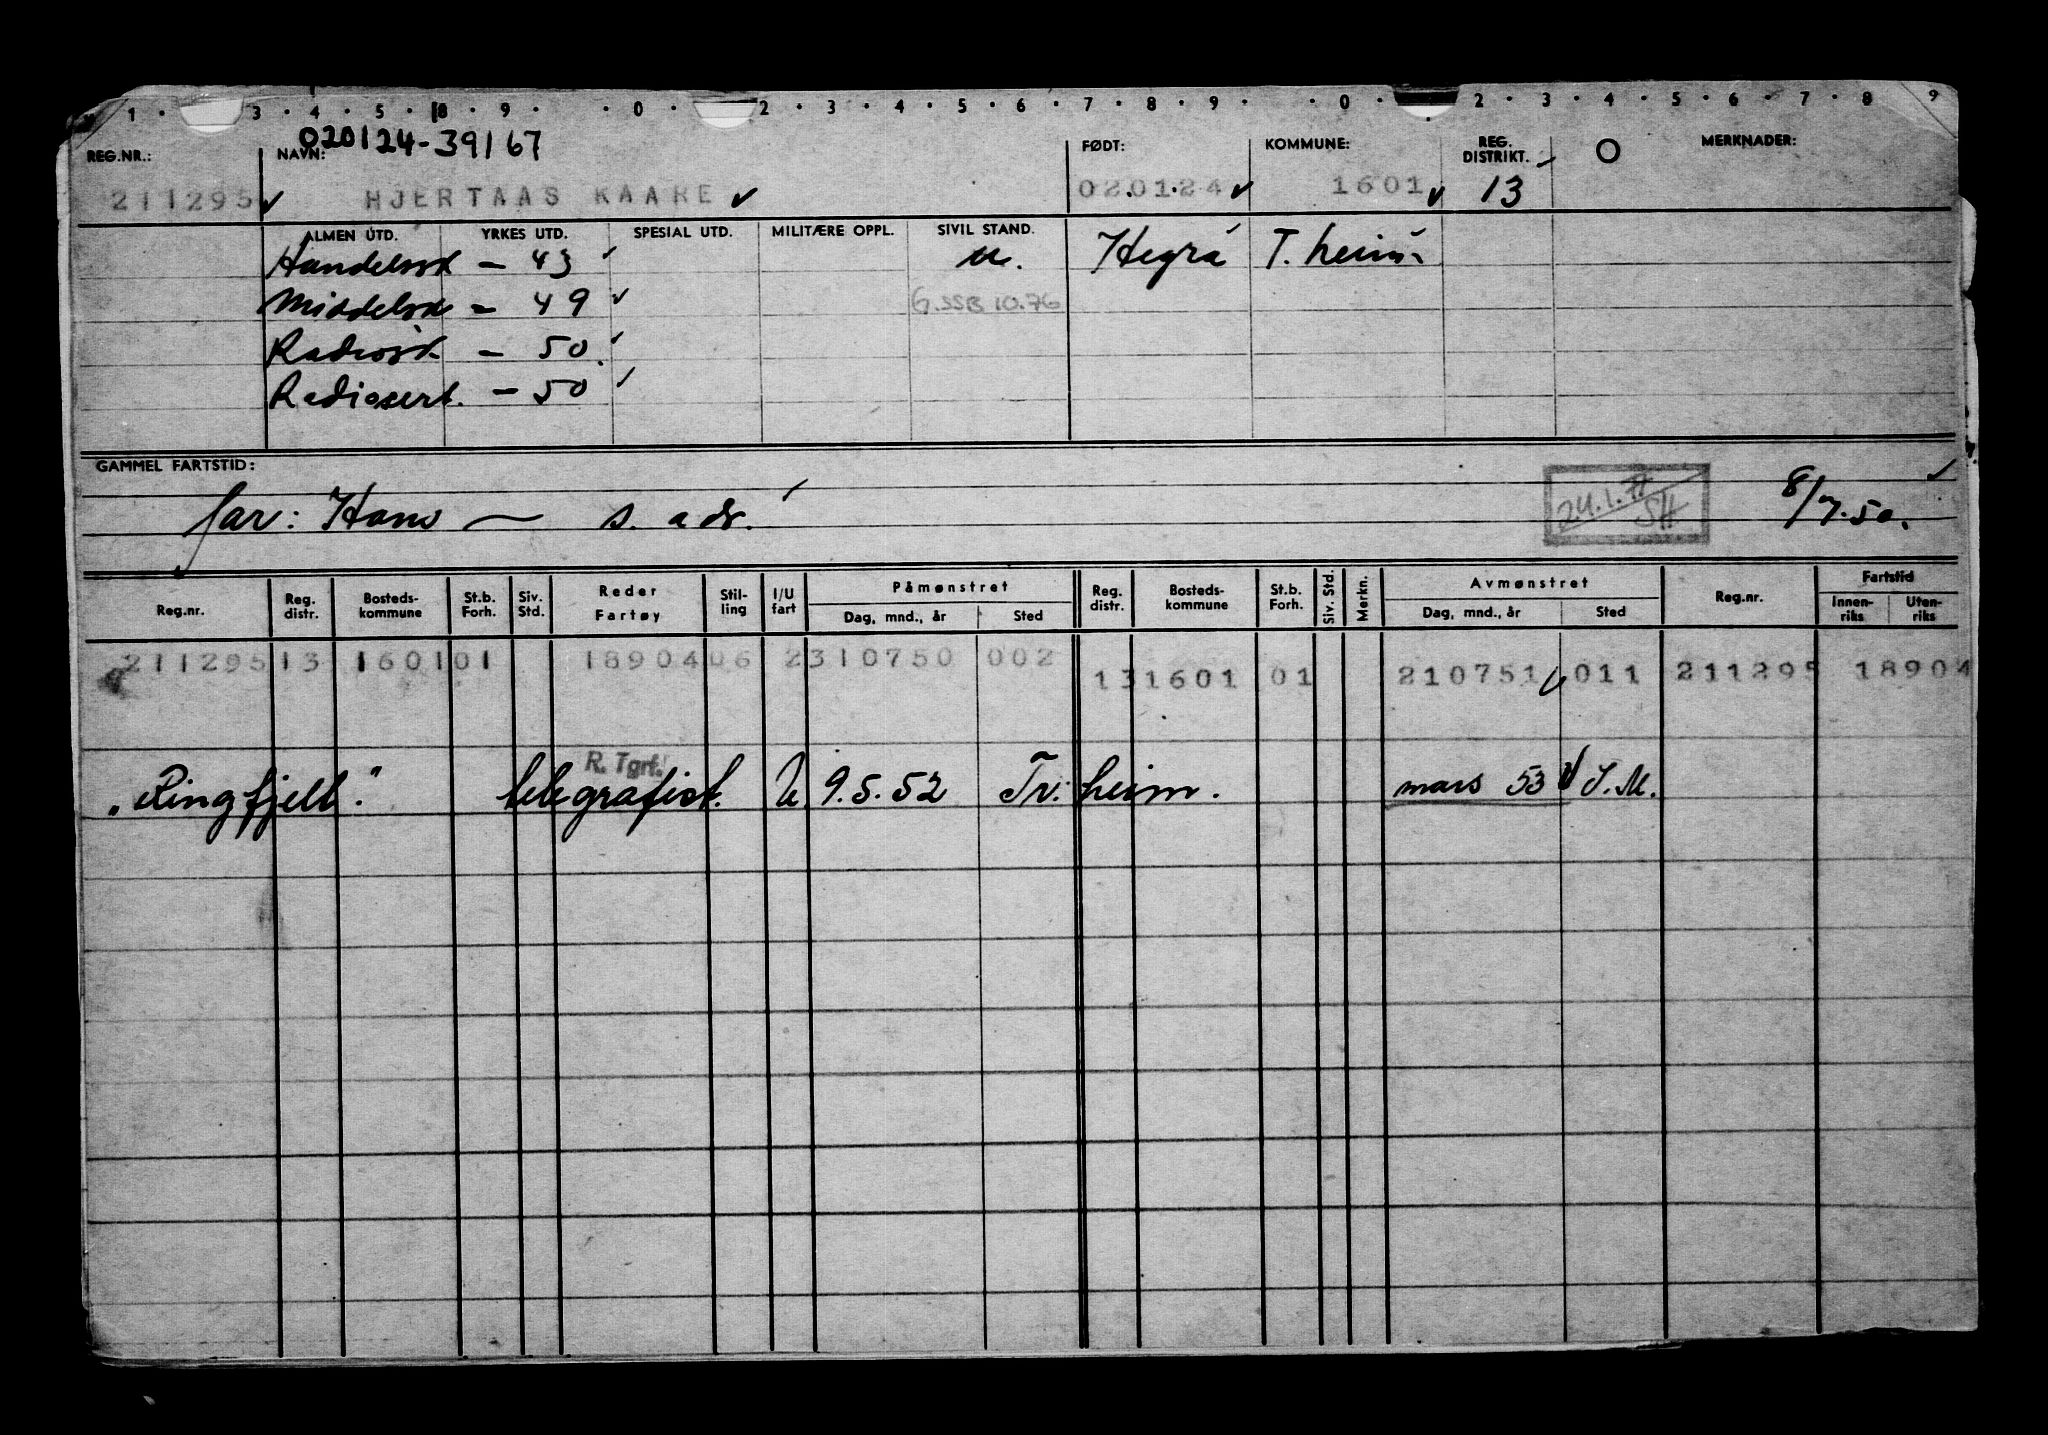 1 · 3 · 4 · 5 · 8 · 9 · · 0 · 2 · 3 · 4 · 5 · 6 · 7 · 8 · 9 · · 0 · 2 · 3 · 4 · 5 · 6 · 7 · 8 9
020124-39167
REG.NR.: NAVN: FØDT: KOMMUNE: REG. DISTRIKT. O MERKNADER:
211295 HJERTAAS KAARE 02.01.24 1601 13
ALMEN UTD. YRKES UTD. SPESIAL UTD. MILITÆRE OPPL. SIVIL STAND.
Handelssk - 43 u. Hegra T.heim
Middelsk - 49 G.SSB 10.76
Radiosk - 50.
Radiosert. - 50
GAMMEL FARTSTID:
far: Hans — s. adr. 24.1.77 SH 8/7.50.
Reg.nr. Reg. distr. Bosteds- kommune St.b. Forh. Siv. Std. Reder Fartøy Stil- ling I/U fart Påmønstret Dag, mnd., år Sted Reg. distr. Bosteds- kommune St.b. Forh. Siv. Std. Merkn. Avmønstret Dag, mnd., år Sted Reg.nr. Fartstid Innen- riks Uten- riks
211295 13 1601 01 18904 06 2 310750 002 13 1601 01 210751 011 211295 18904
R. Tgrf.
"Ringfjell." telegrafist. U 9.5.52 Tr.heim. mars 53 S.M.